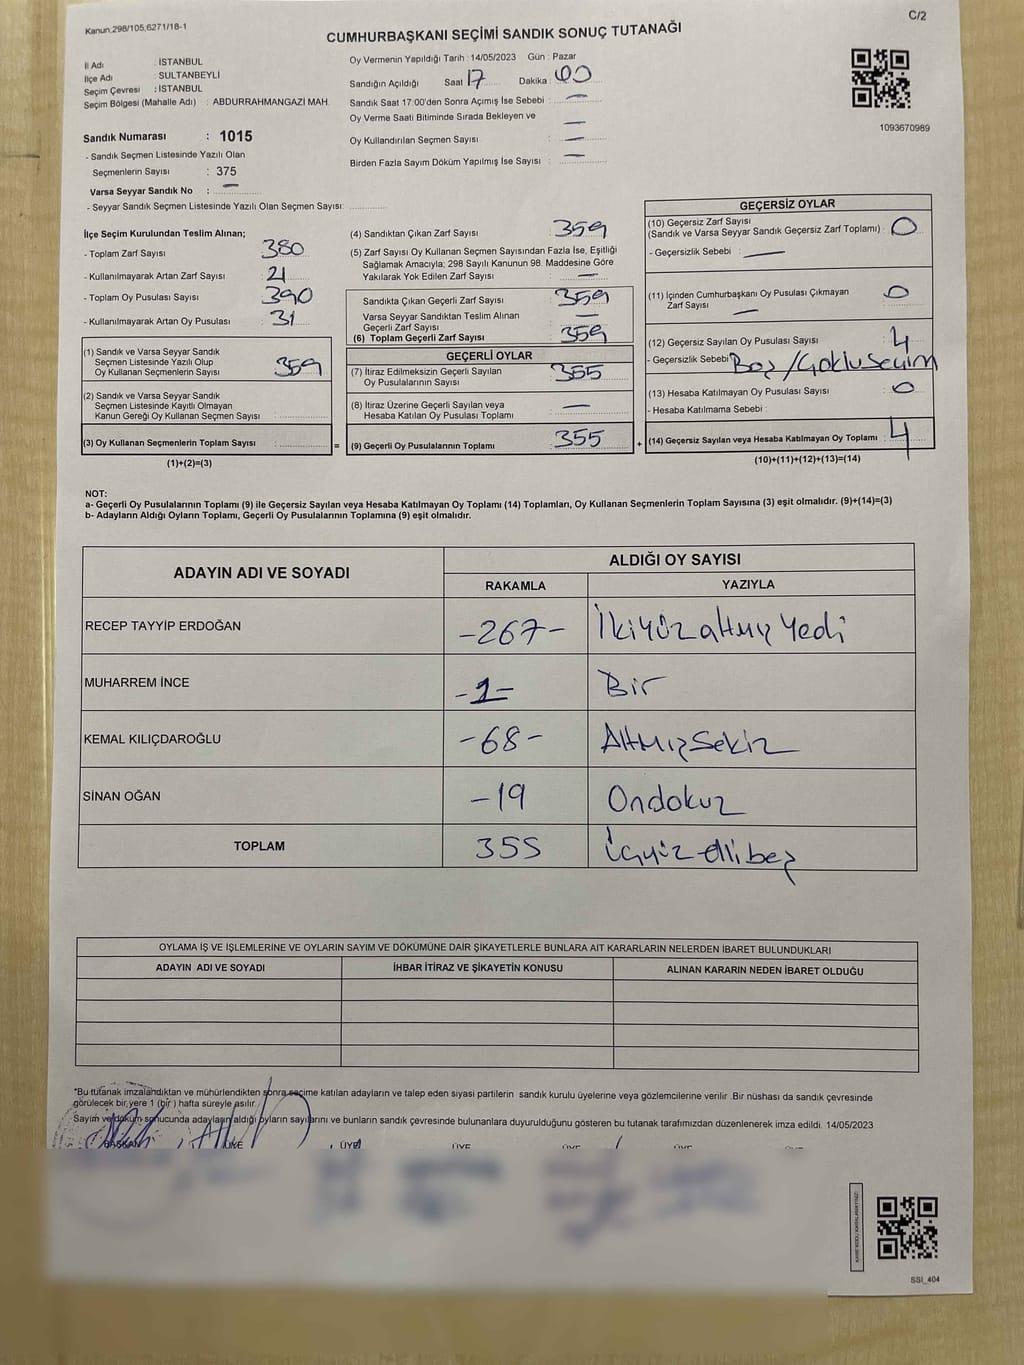 Kanun:298/105,6271/18-1
C/2
CUMHURBAŞKANI SEÇİMİ SANDIK SONUÇ TUTANAĞI
İl Adı : İSTANBUL
İlçe Adı : SULTANBEYLİ
Seçim Çevresi : İSTANBUL
Seçim Bölgesi (Mahalle Adı) : ABDURRAHMANGAZİ MAH.
Sandık Numarası : 1015
- Sandık Seçmen Listesinde Yazılı Olan
Seçmenlerin Sayısı : 375
Varsa Seyyar Sandık No : —
- Seyyar Sandık Seçmen Listesinde Yazılı Olan Seçmen Sayısı:
Oy Vermenin Yapıldığı Tarih : 14/05/2023 Gün : Pazar
Sandığın Açıldığı Saat 17 Dakika : 00
Sandık Saat 17:00'den Sonra Açımış İse Sebebi : —
Oy Verme Saati Bitiminde Sırada Bekleyen ve —
Oy Kullandırılan Seçmen Sayısı : —
Birden Fazla Sayım Döküm Yapılmış İse Sayısı : —
1093670989
İlçe Seçim Kurulundan Teslim Alınan;
- Toplam Zarf Sayısı : 380
- Kullanılmayarak Artan Zarf Sayısı : 21
- Toplam Oy Pusulası Sayısı : 390
- Kullanılmayarak Artan Oy Pusulası : 31
(1) Sandık ve Varsa Seyyar Sandık
Seçmen Listesinde Yazılı Olup
Oy Kullanan Seçmenlerin Sayısı : 359
(2) Sandık ve Varsa Seyyar Sandık
Seçmen Listesinde Kayıtlı Olmayan
Kanun Gereği Oy Kullanan Seçmen Sayısı :
(3) Oy Kullanan Seçmenlerin Toplam Sayısı :
(1)+(2)=(3)
(4) Sandıktan Çıkan Zarf Sayısı : 359
(5) Zarf Sayısı Oy Kullanan Seçmen Sayısından Fazla İse, Eşitliği
Sağlamak Amacıyla; 298 Sayılı Kanunun 98. Maddesine Göre
Yakılarak Yok Edilen Zarf Sayısı : —
Sandıkta Çıkan Geçerli Zarf Sayısı : 359
Varsa Seyyar Sandıktan Teslim Alınan —
Geçerli Zarf Sayısı
(6) Toplam Geçerli Zarf Sayısı : 359
GEÇERLİ OYLAR
(7) İtiraz Edilmeksizin Geçerli Sayılan
Oy Pusulalarının Sayısı : 355
(8) İtiraz Üzerine Geçerli Sayılan veya
Hesaba Katılan Oy Pusulası Toplamı : —
= (9) Geçerli Oy Pusulalarının Toplamı : 355 +
GEÇERSİZ OYLAR
(10) Geçersiz Zarf Sayısı
(Sandık ve Varsa Seyyar Sandık Geçersiz Zarf Toplamı) : 0
- Geçersizlik Sebebi : —
(11) İçinden Cumhurbaşkanı Oy Pusulası Çıkmayan
Zarf Sayısı : 0
—
(12) Geçersiz Sayılan Oy Pusulası Sayısı : 4
- Geçersizlik Sebebi : Boş/Çoklu seçim
(13) Hesaba Katılmayan Oy Pusulası Sayısı : 0
- Hesaba Katılmama Sebebi :
(14) Geçersiz Sayılan veya Hesaba Katılmayan Oy Toplamı : 4
(10)+(11)+(12)+(13)=(14)
NOT:
a- Geçerli Oy Pusulalarının Toplamı (9) ile Geçersiz Sayılan veya Hesaba Katılmayan Oy Toplamı (14) Toplamları, Oy Kullanan Seçmenlerin Toplam Sayısına (3) eşit olmalıdır. (9)+(14)=(3)
b- Adayların Aldığı Oyların Toplamı, Geçerli Oy Pusulalarının Toplamına (9) eşit olmalıdır.
ADAYIN ADI VE SOYADI ALDIĞI OY SAYISI
RAKAMLA YAZIYLA
RECEP TAYYİP ERDOĞAN -267- İkiyüz altmış yedi
MUHARREM İNCE -1- Bir
KEMAL KILIÇDAROĞLU -68- Altmış sekiz
SİNAN OĞAN -19 Ondokuz
TOPLAM 355 Üçyüz elli beş
OYLAMA İŞ VE İŞLEMLERİNE VE OYLARIN SAYIM VE DÖKÜMÜNE DAİR ŞİKAYETLERLE BUNLARA AİT KARARLARIN NELERDEN İBARET BULUNDUKLARI
ADAYIN ADI VE SOYADI İHBAR İTİRAZ VE ŞİKAYETİN KONUSU ALINAN KARARIN NEDEN İBARET OLDUĞU
*Bu tutanak imzalandıktan ve mühürlendikten sonra seçime katılan adayların ve talep eden siyasi partilerin sandık kurulu üyelerine veya gözlemcilerine verilir .Bir nüshası da sandık çevresinde
görülecek bir yere 1 (bir ) hafta süreyle asılır.
Sayım ve döküm sonucunda adayların aldığı oyların sayılarını ve bunların sandık çevresinde bulunanlara duyurulduğunu gösteren bu tutanak tarafımızdan düzenlenerek imza edildi. 14/05/2023
BAŞKAN ÜYE ÜYE ÜYE ÜYE ÜYE ÜYE
SSI_404